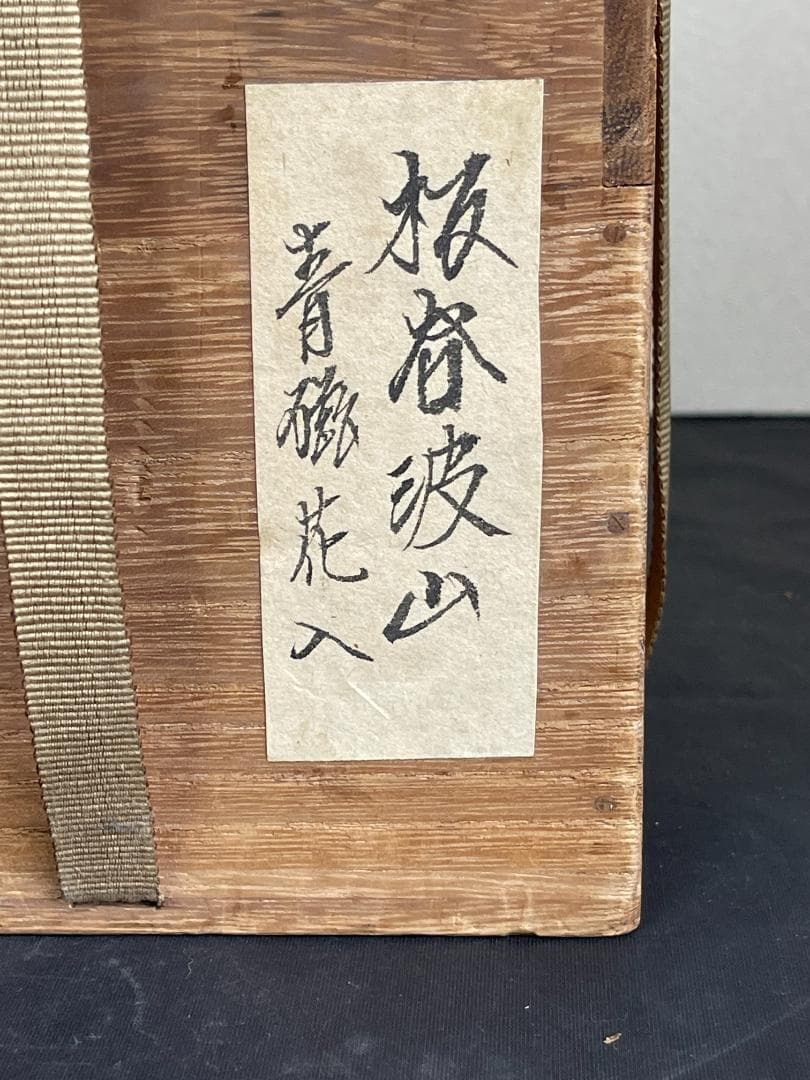 板谷波山
青磁花入